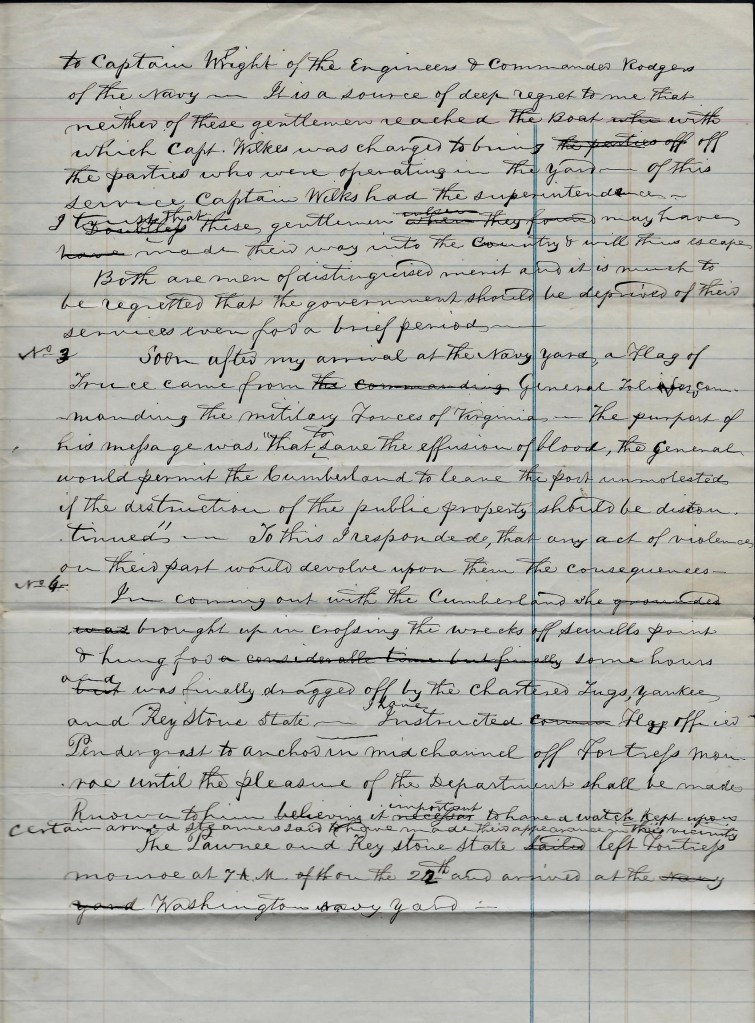 to Captain Wright of the Engineers & Commander Rodgers
of the Navy — It is a source of deep regret to me that
neither of these gentlemen reached the Boat who with
which Capt. Wilkes was charged to bring the parties off off
the parties who were operating in the Yard — of this
service Captain Wilks had the superintendence —
I trust that
Doubtless these gentlemen when they found may have
have made their way into the Country & will thus escape
Both are men of distinguised merit and it is much to
be regretted that the government should be deprived of their
services even for a brief period —
No 3 Soon after my arrival at the Navy Yard, a Flag of
Truce came from the commanding General Com-
-manding the military Forces of Virginia — The purport of
his message was, "that to save the effusion of blood, the General
would permit the Cumberland to leave the port unmolested
if the destruction of the public property should be discon-
-tinued" — To this I responded, that any act of violence
on their part would devolve upon them the consequences —
No 4
In coming out with the Cumberland she grounded
was brought up in crossing the wrecks off Sewells point
& hung for a considerable time but finally some hours
and
but was finally dragged off by the chartered Tugs, Yankee
and Key Stone State — I have Instructed Flag officer
Pendergrast to anchor in mid channel off Fortress Mon-
-roe until the pleasure of the Department shall be made
Known to him believing it necessar important to have a watch kept upon
certain armed steamers said to have made their appearance in this vicinity
The Pawnee and Key stone State Sailed left Fortress
monroe at 7 A.M. on the 22th and arrived at the Navy
yard Washington navy yard —